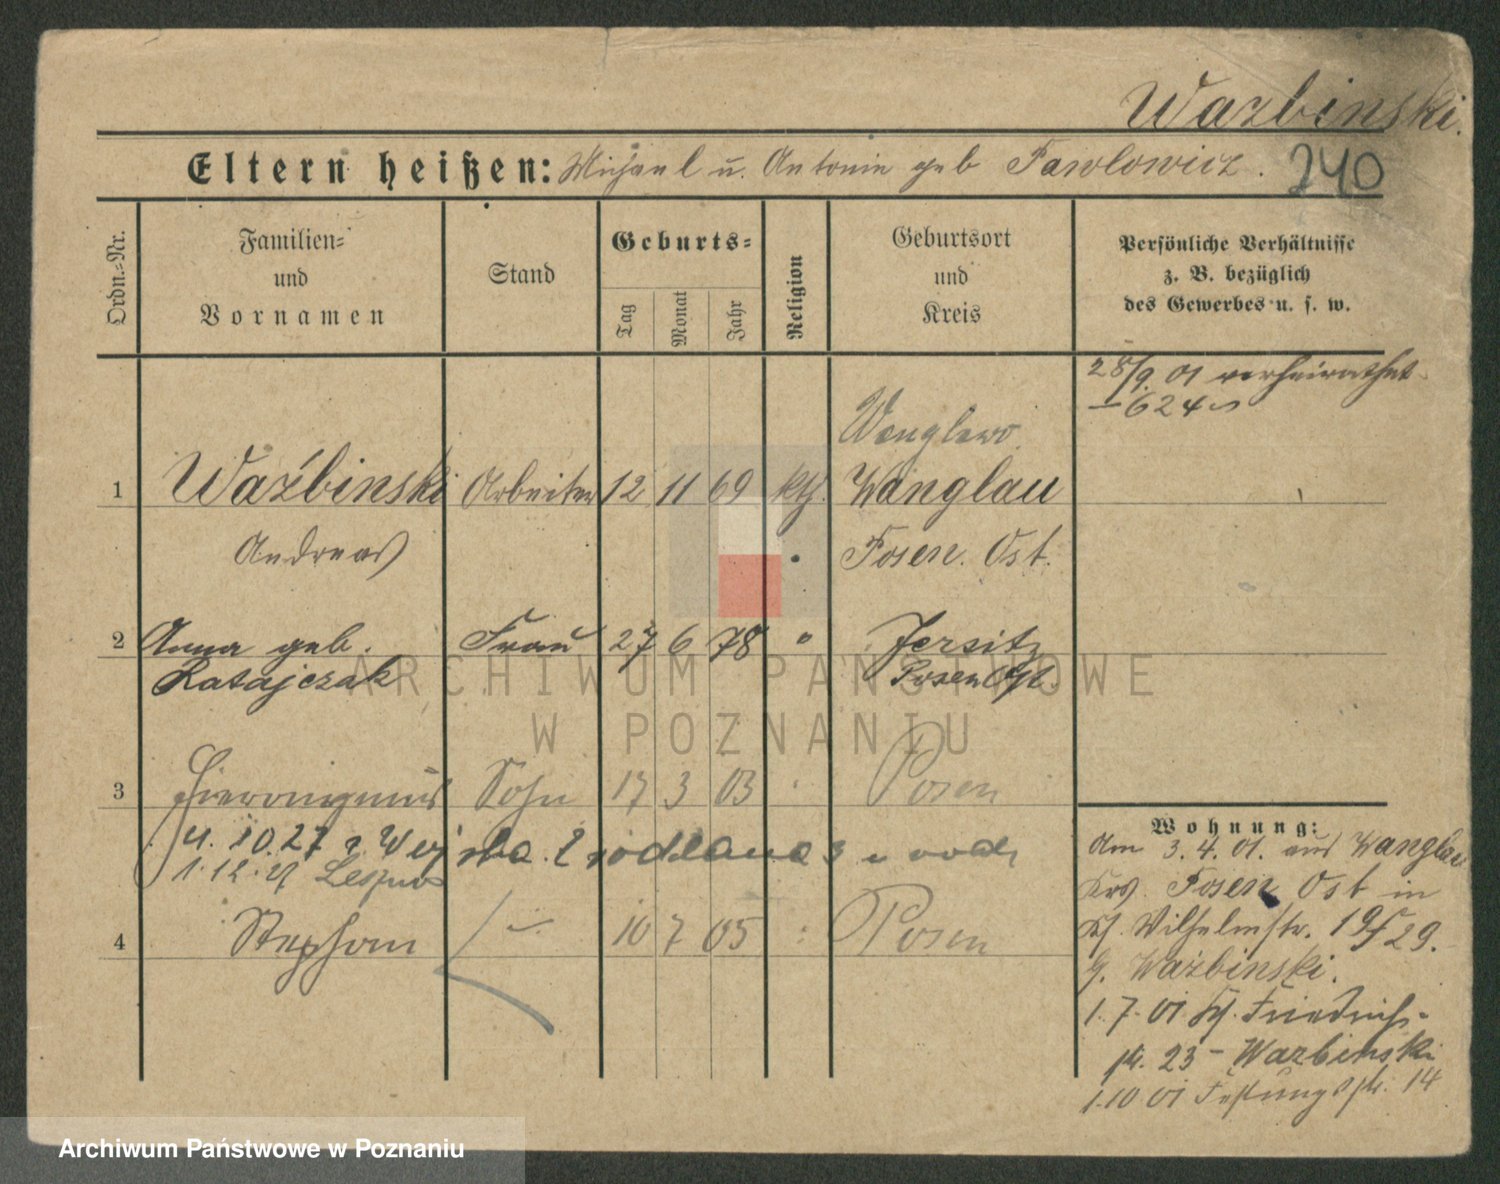 Wazbinski.
Eltern heißen: Michael u. Antonie geb Pawlowicz. 240
Ordn.=Nr.
Familien=
und
Vornamen
Stand
Geburts=
Tag
Monat
Jahr
Religion
Geburtsort
und
Kreis
Persönliche Verhältnisse
z. B. bezüglich
des Gewerbes u. s. w.
28/9. 01 verheirathet
Wenglewo
1 Waźbinski Arbeiter 12 11 69 kth. Wanglau
Andreas Posen. Ost.
2 Anna geb. Frau 27 6 78 " Jersitz
Ratajczak Posen Ost.
3 Hieronymus Sohn 17 3 03 Posen
4. 10. 27
1. 12. 27
4 Stephan 10 7 05 Posen
Wohnung:
Am 3. 4. 01. aus Wanglau
Krs. Posen Ost in
Wilhelmstr. 19/29.
Wazbinski.
1. 7. 01 Friedrich-
str. 23 - Wazbinski
1.10 01 Festungsstr. 14
ARCHIWUM PAŃSTWOWE
W POZNANIU
Archiwum Państwowe w Poznaniu